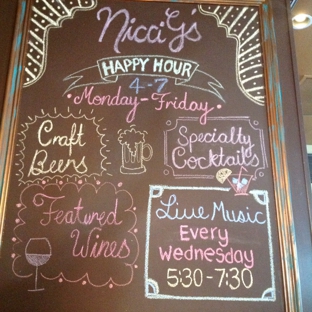 Nicci Gs
HAPPY HOUR
4-7
Monday-Friday
Craft
Beers
Specialty
Cocktails
Featured
Wines
Live Music
Every
Wednesday
5:30-7:30